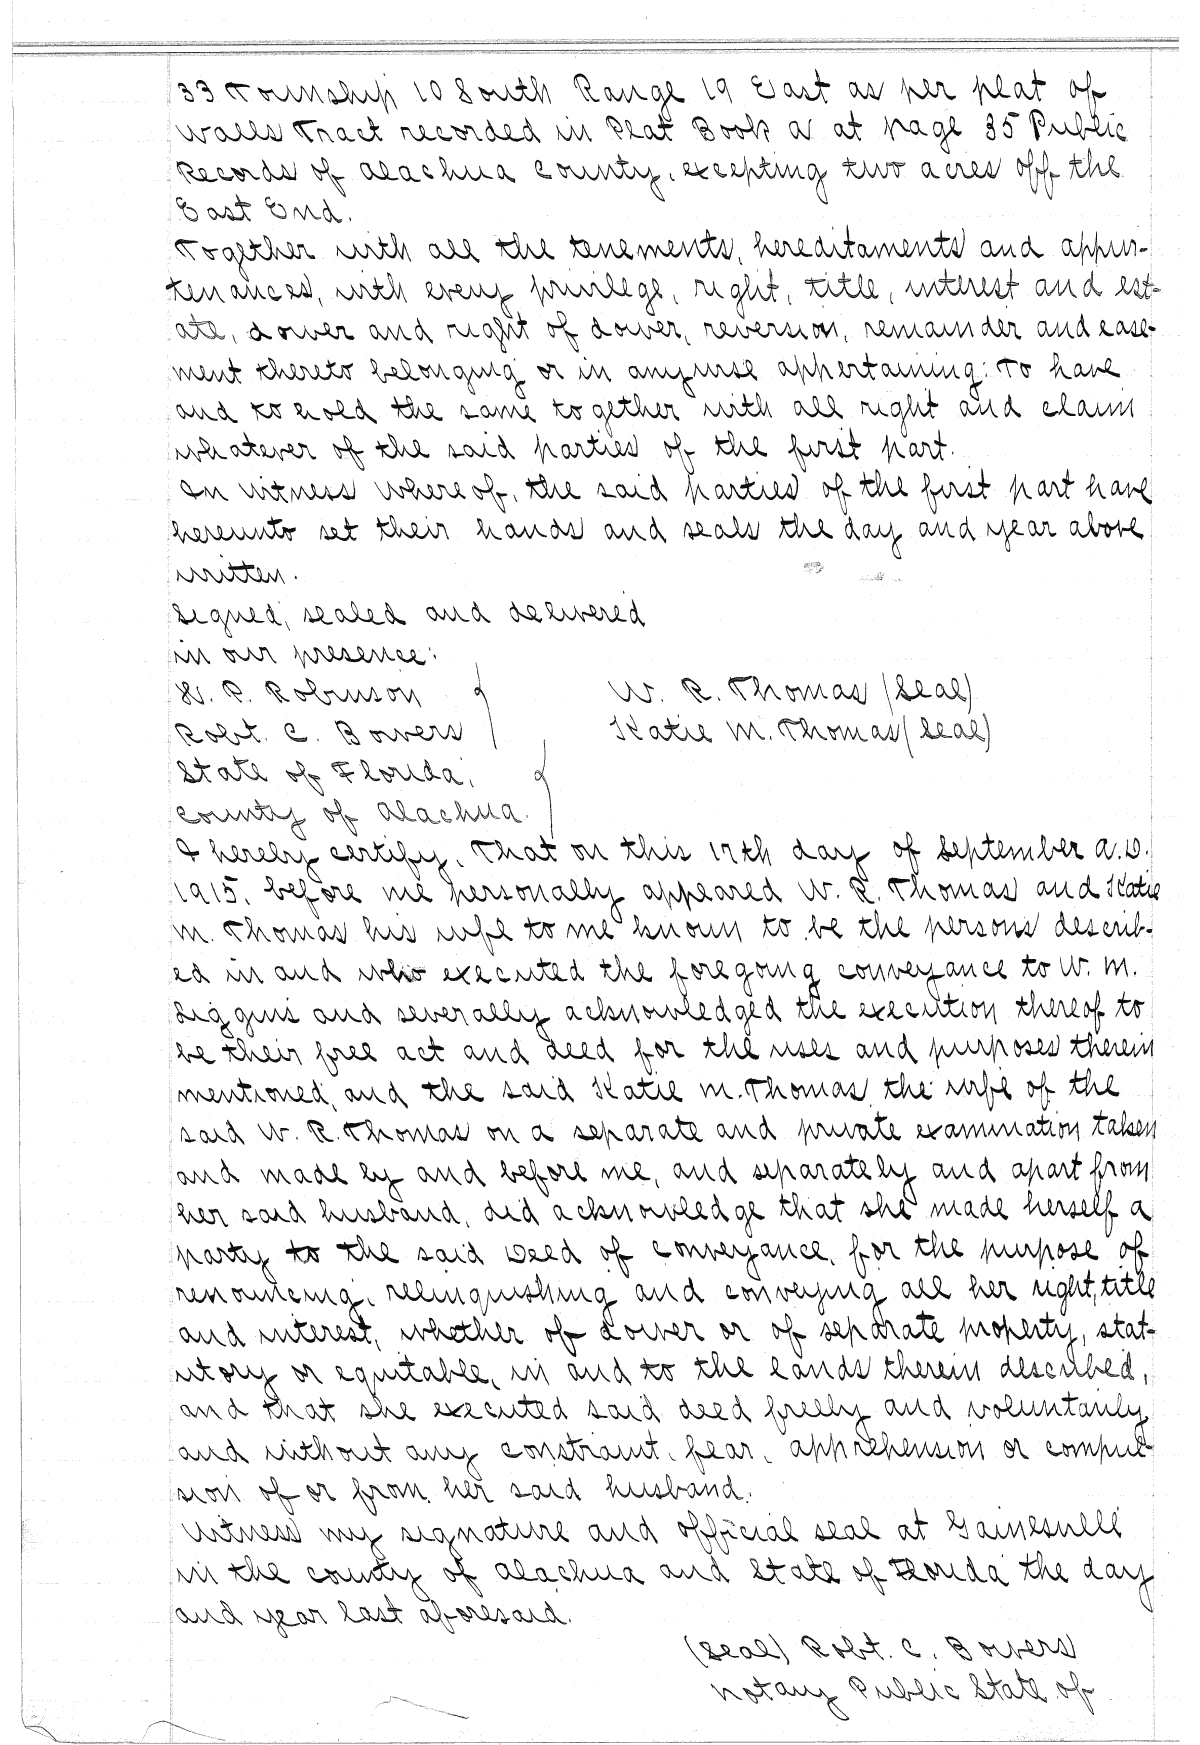 33 Township 10 South Range 19 East as per plat of
Walls Tract recorded in Plat Book A at page 35 Public
Records of Alachua County, excepting two acres off the
East End.
Together with all the tenements, hereditaments and appur-
tenances, with every privilege, right, title, interest and est-
ate, dower and right of dower, reversion, remainder and ease-
ment thereto belonging or in anywise appertaining: To have
and to hold the same together with all right and claim
whatever of the said parties of the first part.
In witness whereof, the said parties of the first part have
hereunto set their hands and seals the day and year above
written.
Signed, sealed and delivered
in our presence:
W. P. Robinson W. R. Thomas (Seal)
Robt. C. Bowers Katie M. Thomas (Seal)
State of Florida,
County of Alachua.
I hereby certify, That on this 17th day of September A.D.
1915, before me personally appeared W. R. Thomas and Katie
M. Thomas his wife to me known to be the persons describ-
ed in and who executed the foregoing conveyance to W. M.
Liggins and severally acknowledged the execution thereof to
be their free act and deed for the uses and purposes therein
mentioned, and the said Katie M. Thomas, the wife of the
said W. R. Thomas on a separate and private examination taken
and made by and before me, and separately and apart from
her said husband, did acknowledge that she made herself a
party to the said Deed of conveyance, for the purpose of
renouncing, relinquishing and conveying all her right, title
and interest, whether of dower or of separate property, stat-
utory or equitable, in and to the lands therein described,
and that she executed said deed freely and voluntarily
and without any constraint, fear, apprehension or compul-
sion of or from her said husband.
Witness my signature and official seal at Gainesville
in the county of Alachua and State of Florida the day
and year last aforesaid.
(Seal) Robt. C. Bowers
Notary Public State of